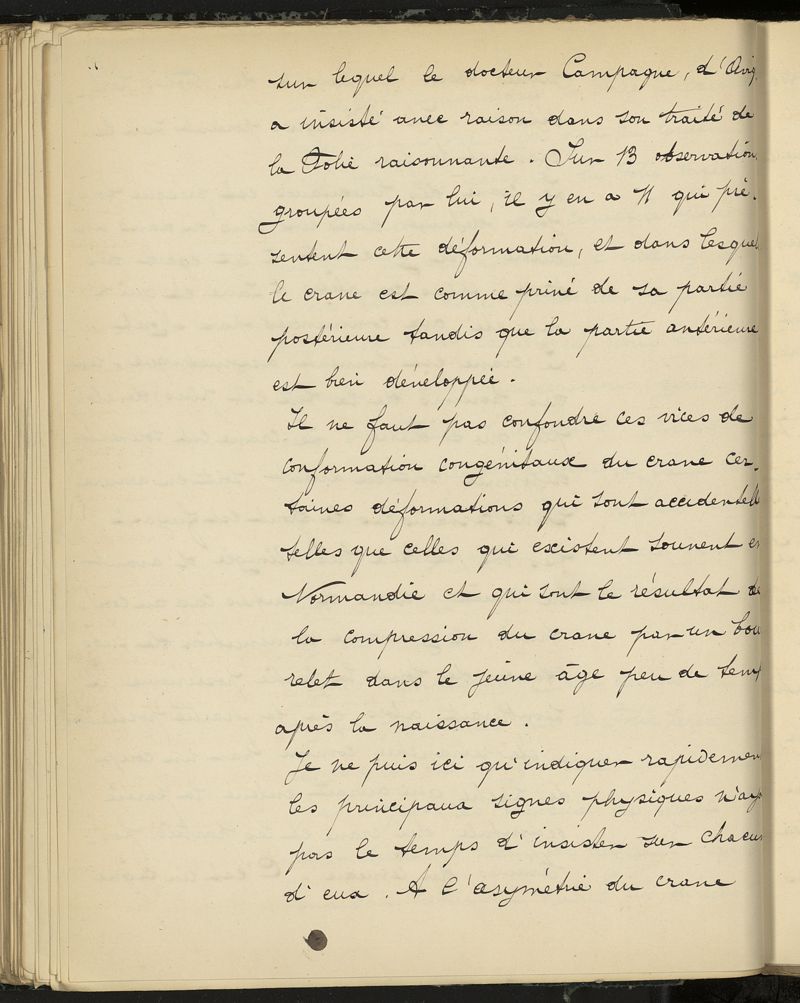 sur lequel le docteur Campagne, d'Avig
a insisté avec raison dans son traité de
la Folie raisonnante. Sur 13 observation
groupées par lui, il y en a 11 qui pré-
sentent cette déformation, et dans lesquel
le crane est comme privé de sa partie
postérieure tandis que la partie antérieure
est bien développée.
Il ne faut pas confondre ces vices de
conformation congénitaux du crane cer-
taines déformations qui sont accidentell
telles que celles qui existent souvent en
Normandie et qui sont le résultat de
la compression du crane par un bou
relet dans le jeune âge peu de temp
après la naissance.
Je ne puis ici qu'indiquer rapidemen
les principaux signes physiques n'aya
pas le temps d'insister sur chacun
d'eux. A l'asymétrie du crane